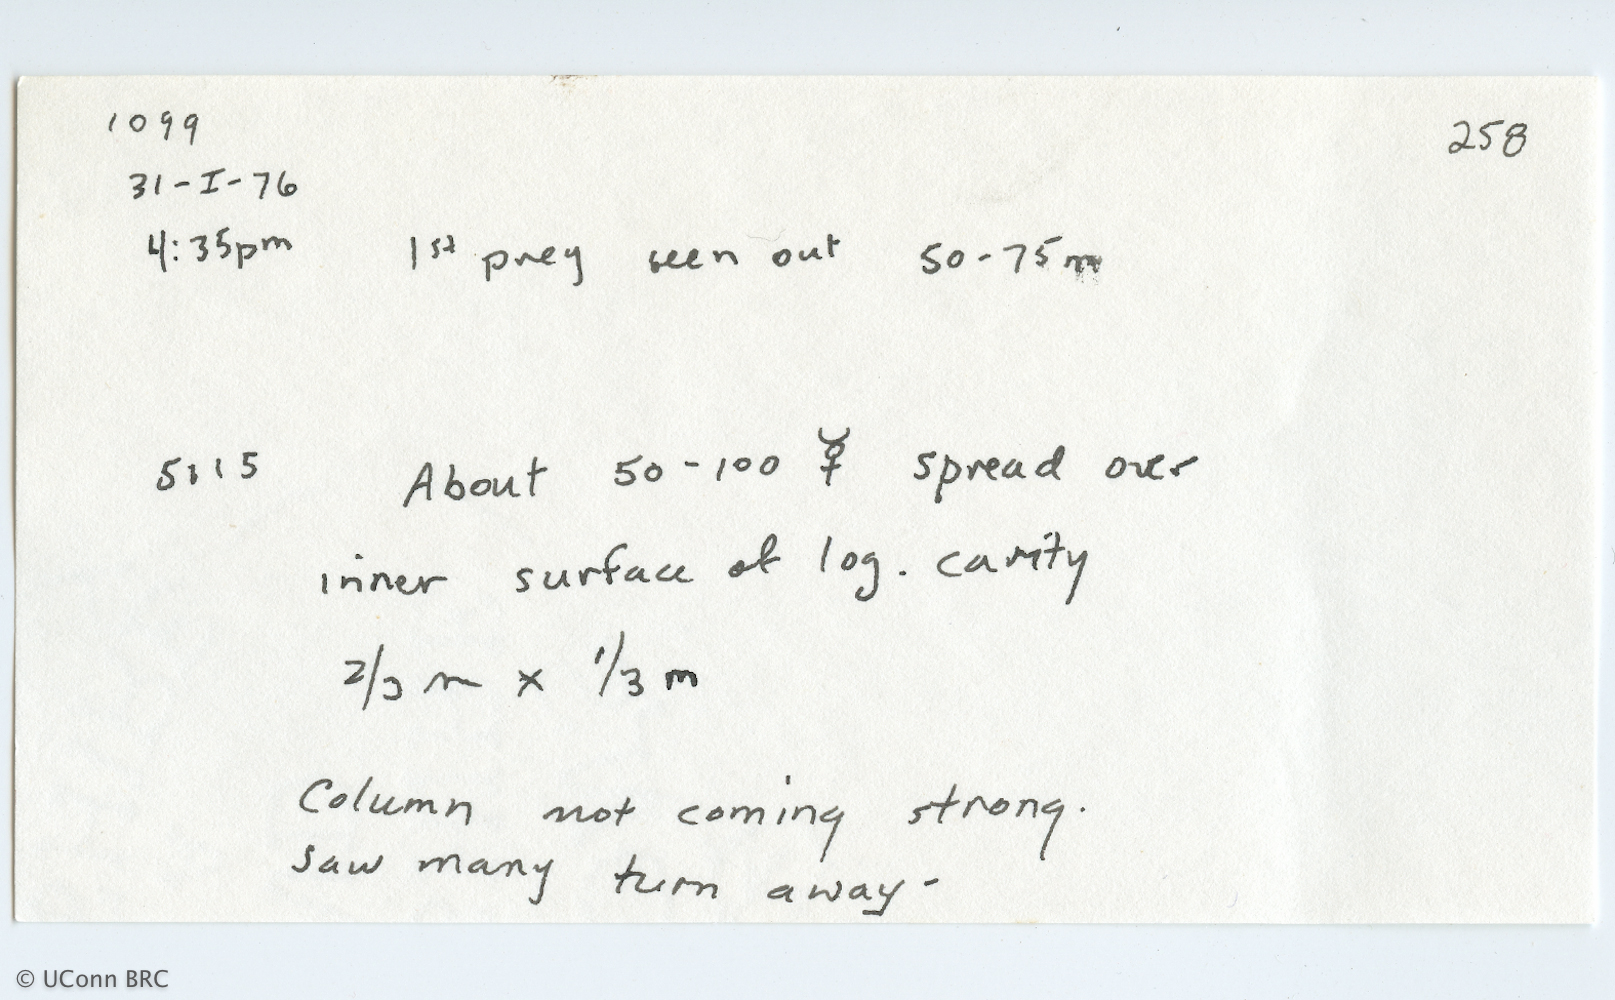 1099
258
31-I-76
4:35pm 1st prey seen out 50-75m
5:15 About 50-100 ☿ spread over
inner surface of log. cavity
2/3 m x 1/3 m
Column not coming strong.
Saw many turn away-
© UConn BRC